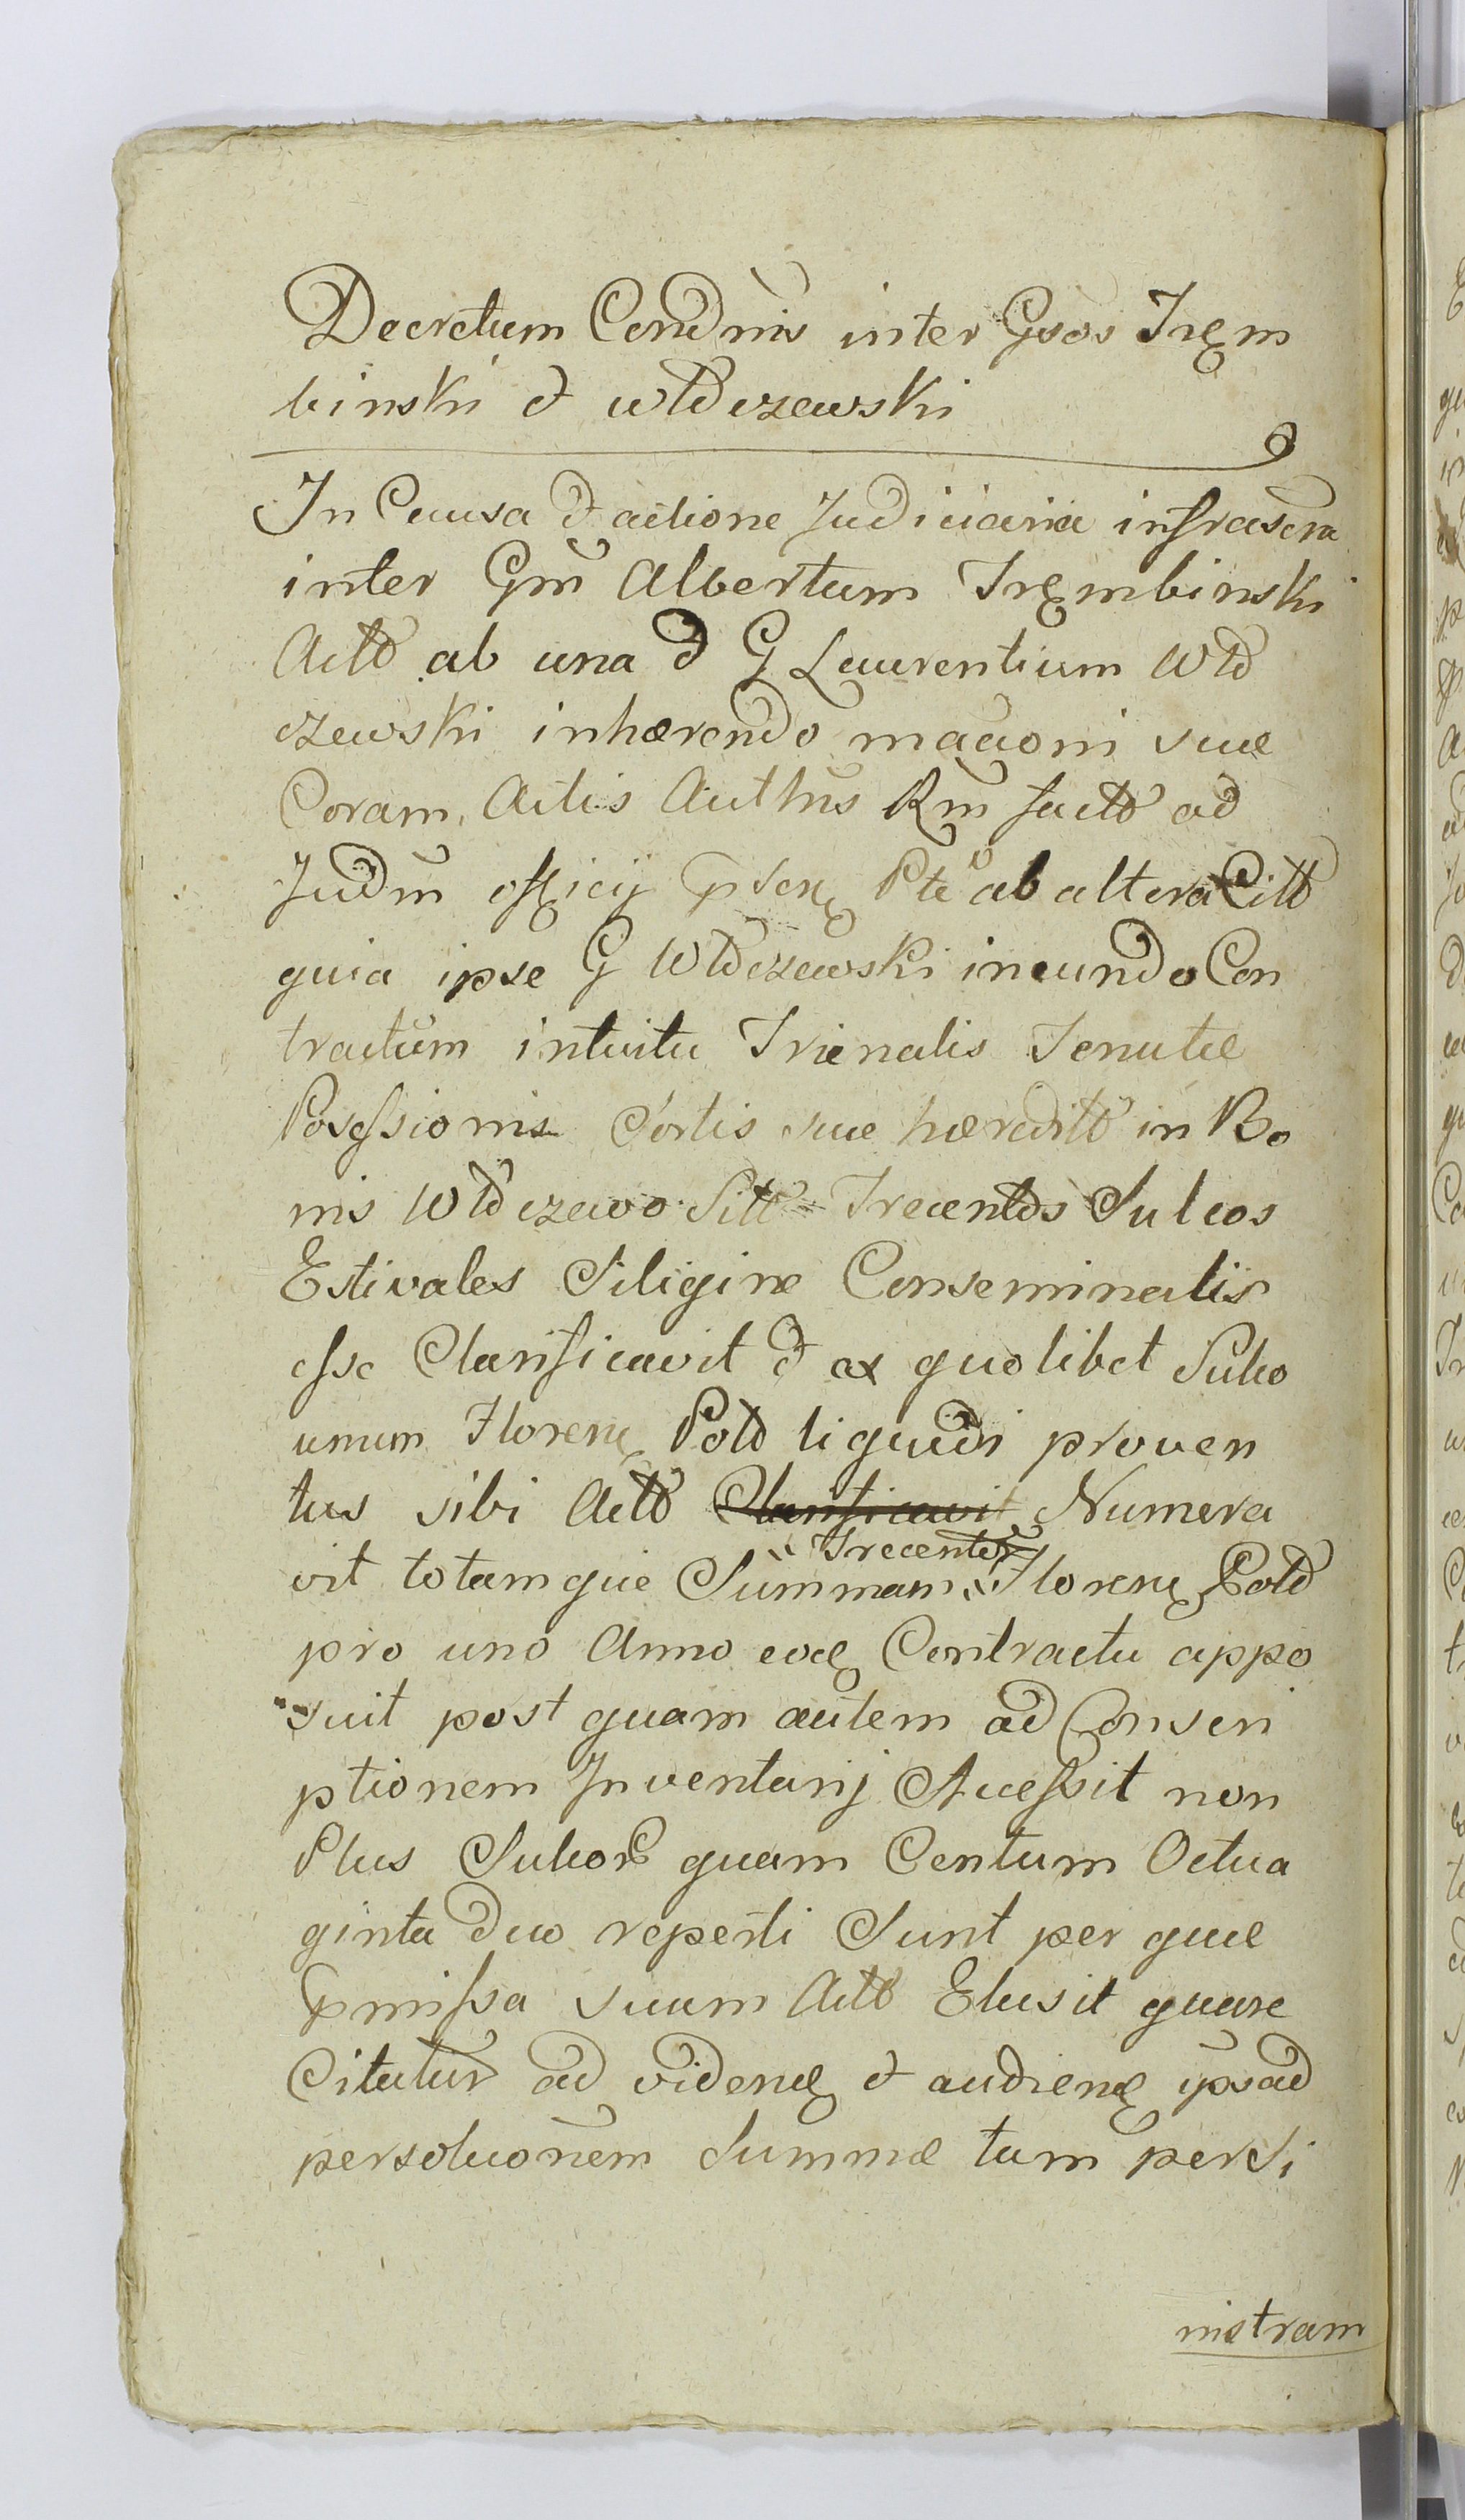 Decretum Condnis inter Gsos Trem
binski et Wldczewski
In Causa et actione Judiciaria infrascra
inter Gm Albertum Trembinski
Actd ab una et G Laurentium Wld
czewski inhærendo mãcioni suæ
Coram Actis Authüs Rm factd ad
Judm officij præsen Pte ab altera Citt
quia ipse G Wldczewski ineundo Con
tractum intuitu Trienalis Tenutæ
Possessionis Sortis suæ hæreditt in Bo
nis Wldczewo Sitt Trecentos Sulcos
Estivales Siligine Conseminalis
esse Clarificavit et ex quolibet Sulco
unum Floren Pold liquidi proven
tus sibi Actd Clarificavit Numera
vit totamque Summam Trecentor Floren Pold
pro uno Anno eoð Contractu appo
suit post quam autem ad Conscri
ptionem Inventarij Accessit non
Plus Sulcor quam Centum Octua
ginta duo reperti Sunt per quæ
præmissa suum Actd Elusit quare
Citatur ad viden et audien ipsad
persolucionem Summæ tam per Si
nistram